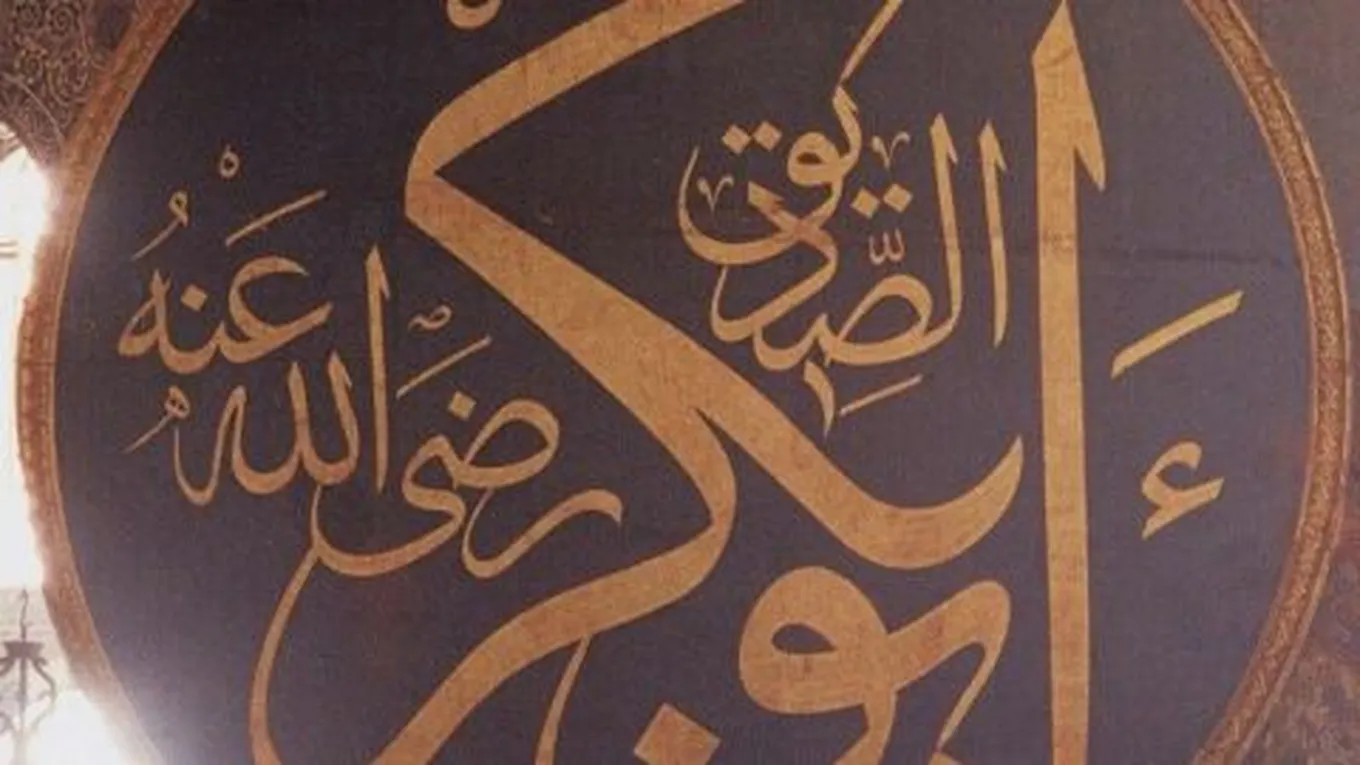 أبو بكر
الصِّدِّيق
رضى الله عَنهُ